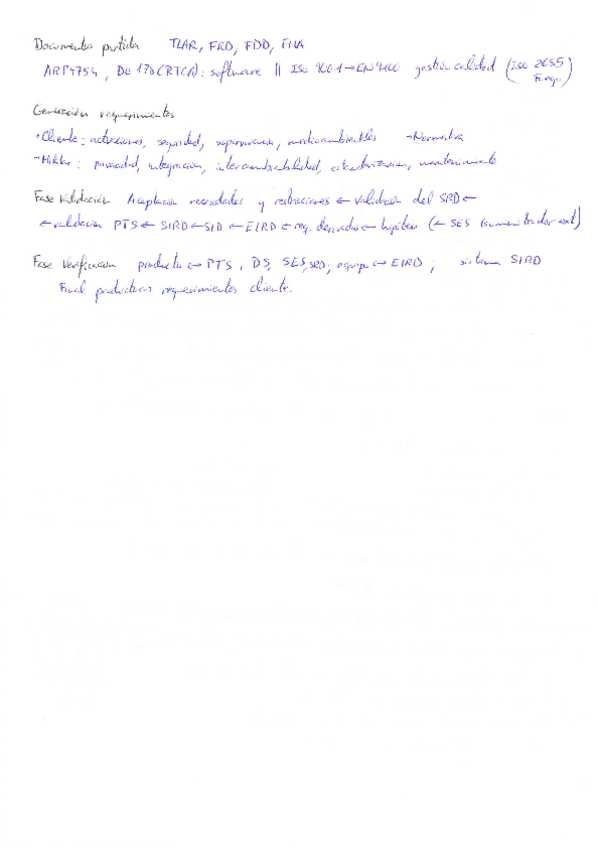 Documentos partida TLAR, FRD, FDD, FHA
ARP4754, DO 178 (RTCA): software || ISO 9001→EN9100 gestión calidad (ISO 2655
Generación requerimientos
Cliente: actuaciones, seguridad, supervivencia, medioambientales →Normativa
privacidad, integración, intercambiabilidad, estandarización, mantenimiento
Fase Validación Aceptación necesidades y restricciones ← Validación del SRD ←
← validación PTS ← SIRD ← SID ← EIRD ← req. derivados ← hipótesis (← SES suministrador ext)
Fase Verificación producto → PTS, DS, SES, SRD; equipo → EIRD; sistema SIRD
Final requerimientos cliente.